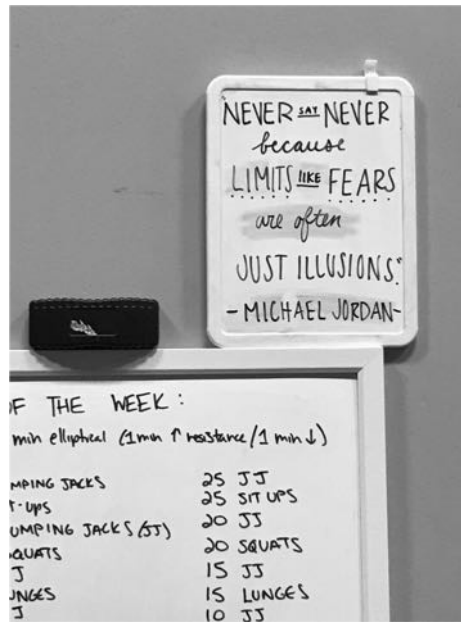 "NEVER SAY NEVER
because
LIMITS LIKE FEARS
are often
JUST ILLUSIONS."
- MICHAEL JORDAN -
OF THE WEEK:
min elliptical (1min ↑ resistance/1 min ↓)
MPING JACKS
T-UPS
UMPING JACKS (JJ)
SQUATS
J
UNGES
J
25 JJ
25 SIT UPS
20 JJ
20 SQUATS
15 JJ
15 LUNGES
10 JJ